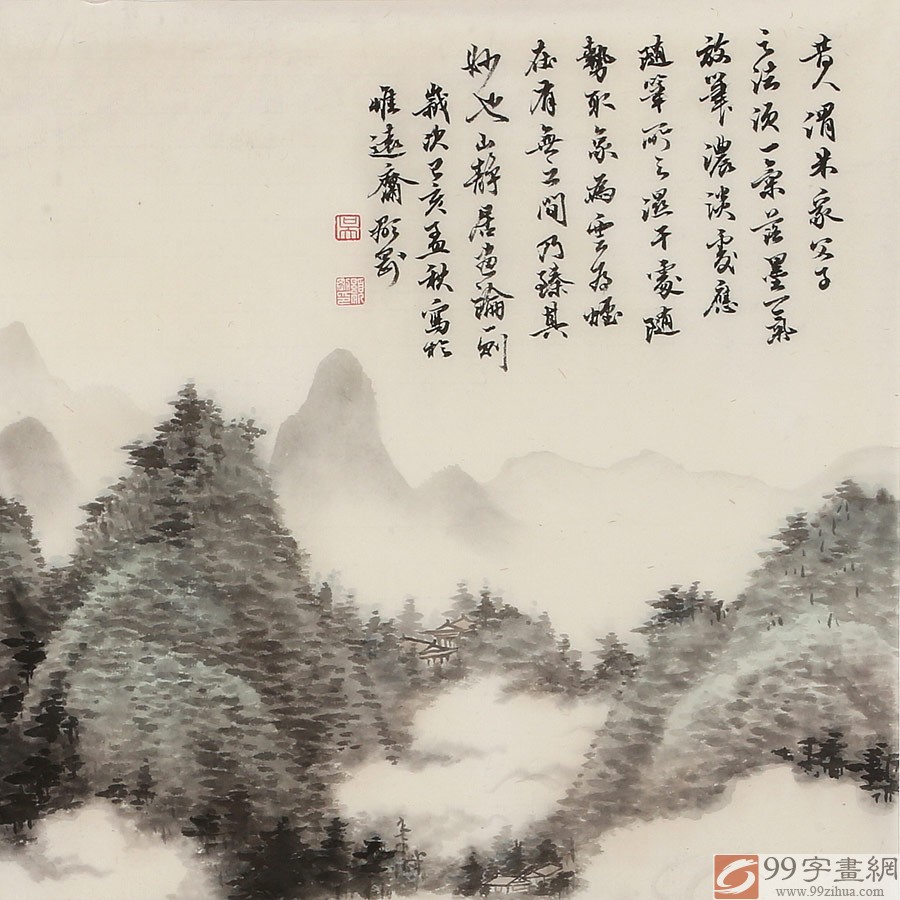 昔人謂米家父子
之法須一氣落墨一氣
放筆濃淡處應
隨筆所之濕干處隨
勢取象為雲為煙
在有無之間乃臻其
妙也山靜居畫論一則
歲次己亥孟秋寫於
惟遠齋
99字畫網
www.99zihua.com